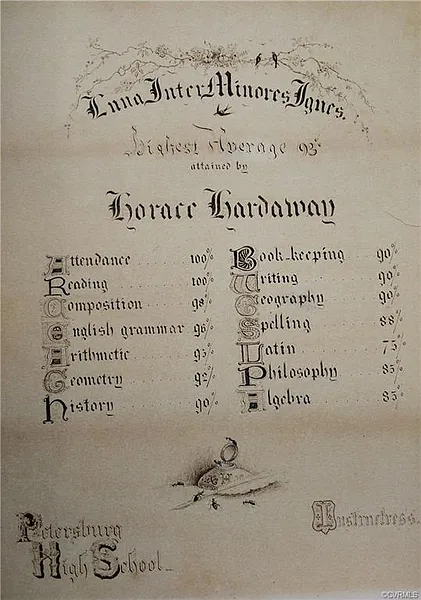 Luna Inter Minores Ignes.
Highest Average 93%
attained by
Horace Hardaway
Attendance 100%
Reading 100%
Composition 98%
English grammar 96%
Arithmetic 95%
Geometry 92%
History 90%
Book-keeping 90%
Writing 90%
Geography 90%
Spelling 88%
Latin 75%
Philosophy 85%
Algebra 85%
Petersburg
High School_
Instructress.
©CVRMLS